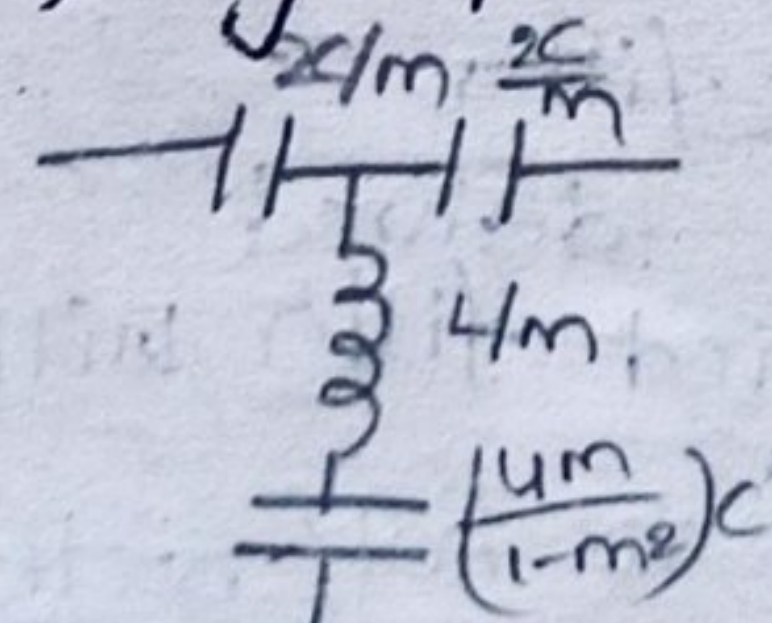 2C/m 2C/m
L/m.
(4m/1-m²)C